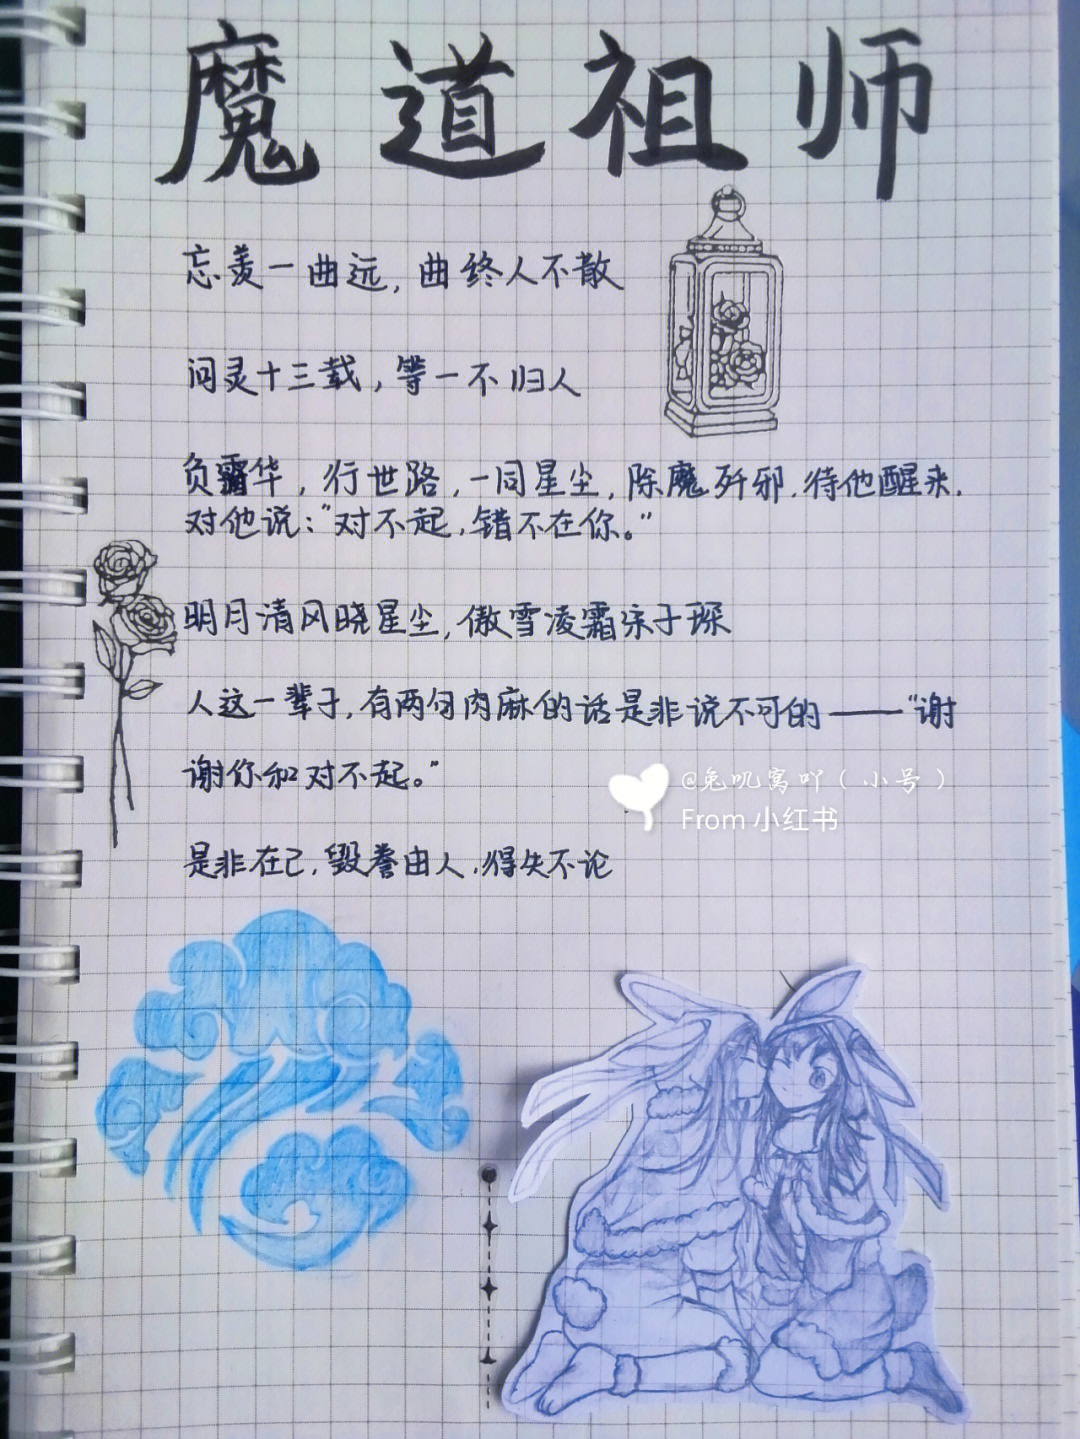 魔道祖师
忘羡一曲远，曲终人不散
问灵十三载，等一不归人
负霜华，行世路，一同星尘，除魔歼邪，待他醒来，
对他说：“对不起，错不在你。”
明月清风晓星尘，傲雪凌霜宋子琛
人这一辈子，有两句肉麻的话是非说不可的——“谢
谢你和对不起。”
@兔叽窝吖（小号）
From 小红书
是非在己，毁誉由人，得失不论